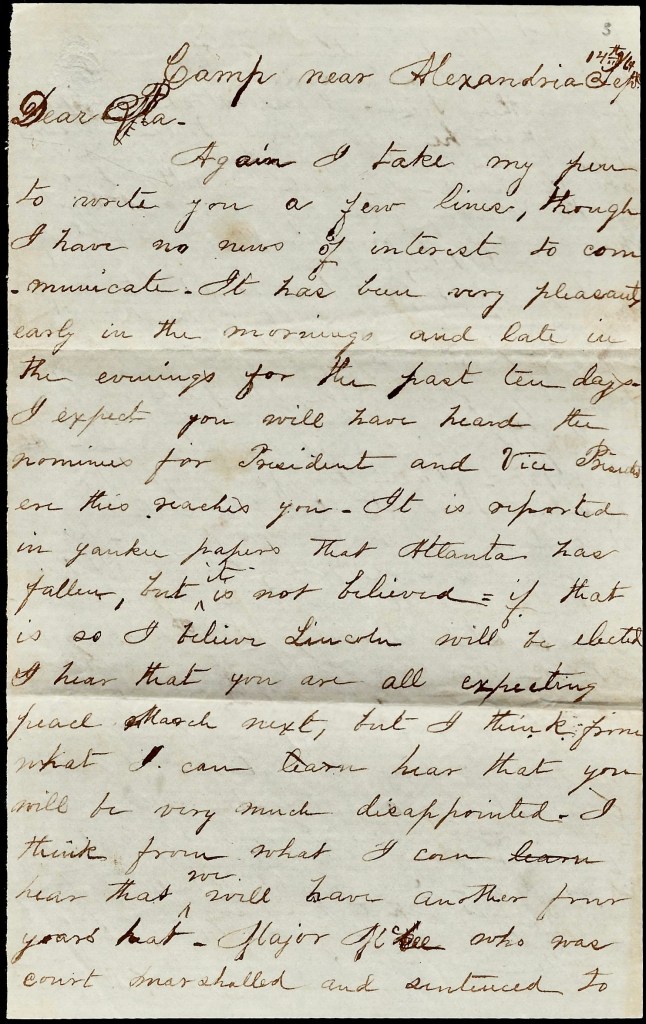 3
Camp near Alexandria Sept. 14th /64
Dear Pa -
Again I take my pen
to write you a few lines, though
I have no news of interest to com
-municate - It has been very pleasant
early in the mornings and late in
the evenings for the past ten days -
I expect you will have heard the
nominees for President and Vice President
ere this reaches you - It is reported
in yankee papers that Atlanta has
fallen, but it is not believed = if that
is so I believe Lincoln will be elected
I hear that you are all expecting
peace March next, but I think from
what I can learn hear that you
will be very much disappointed - I
think from what I can learn
hear that we will have another four
years - Major McKee who was
court marshalled and sentenced to